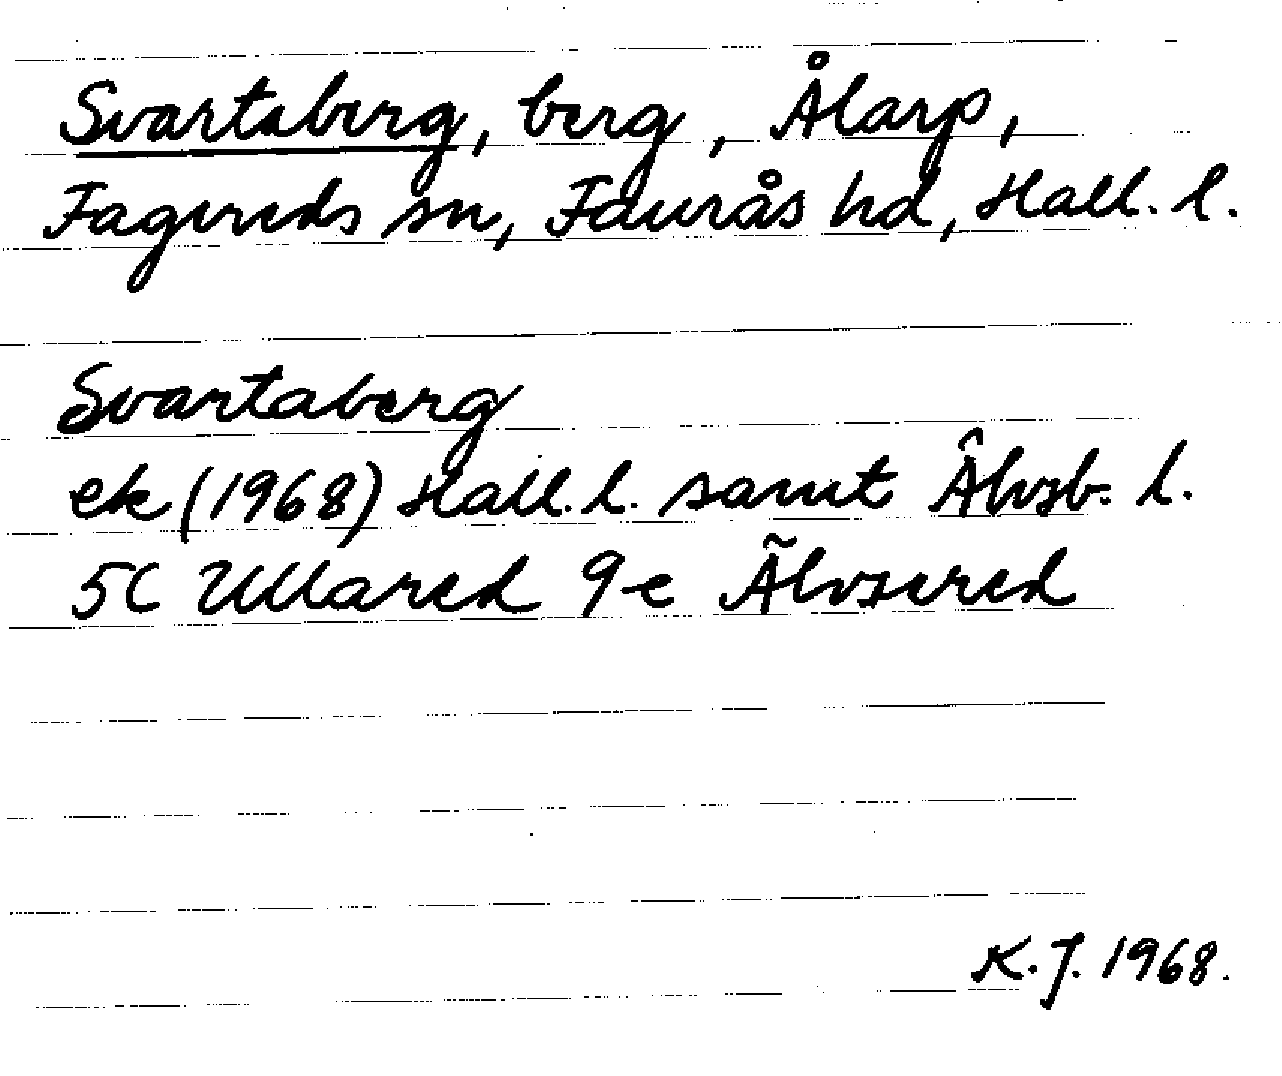 Svartaberg, berg, Ålarp,
Fagereds sn, Faurås hd, Hall. l.
Svartaberg
ek (1968) Hall. l. samt Älvsb. l.
5C Ullared 9-e Älvsered
K.J. 1968.